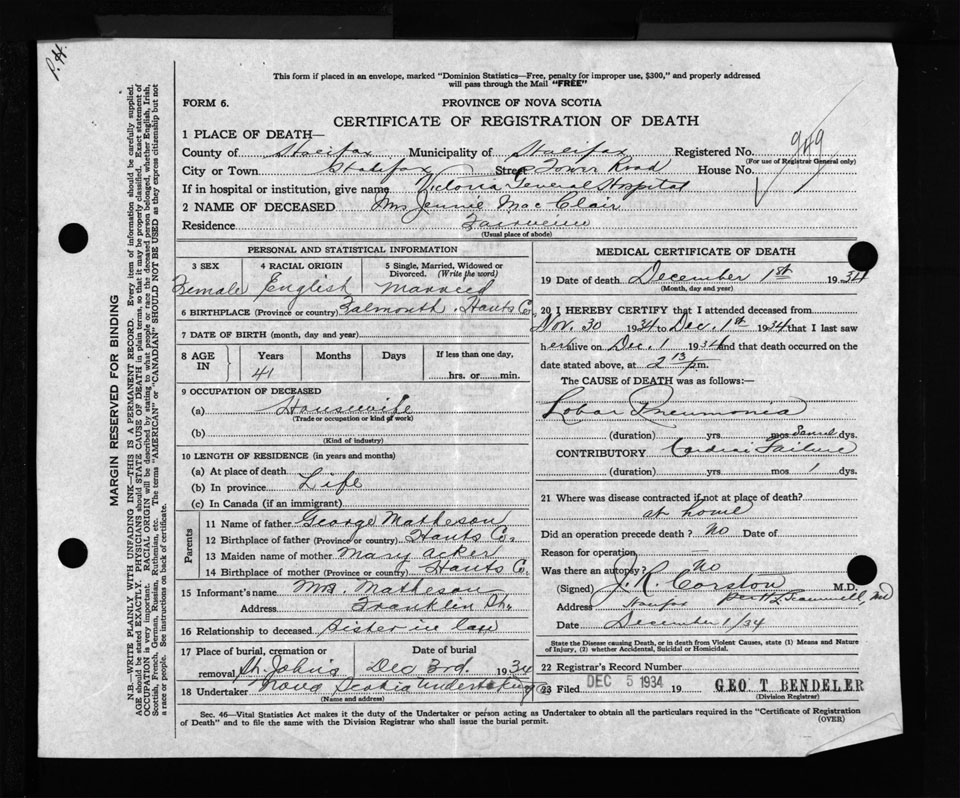 P.H.
This form if placed in an envelope, marked "Dominion Statistics—Free, penalty for improper use, $300," and properly addressed
will pass through the Mail "FREE"
FORM 6.
PROVINCE OF NOVA SCOTIA
CERTIFICATE OF REGISTRATION OF DEATH
1 PLACE OF DEATH—
County of Halifax Municipality of Halifax Registered No. 949
(For use of Registrar General only)
City or Town Halifax Street Tower Road House No.
If in hospital or institution, give name Victoria General Hospital
2 NAME OF DECEASED Mrs Jennie MacClair
Residence Fairview
(Usual place of abode)
PERSONAL AND STATISTICAL INFORMATION
3 SEX 4 RACIAL ORIGIN 5 Single, Married, Widowed or
Divorced. (Write the word)
Female English Married
6 BIRTHPLACE (Province or country) Falmouth, Hants Co.
7 DATE OF BIRTH (month, day and year)
8 AGE IN Years Months Days If less than one day,
41 hrs. or min.
9 OCCUPATION OF DECEASED
(a) Housewife
(Trade or occupation or kind of work)
(b)
(Kind of industry)
10 LENGTH OF RESIDENCE (in years and months)
(a) At place of death
(b) In province Life
(c) In Canada (if an immigrant)
Parents
11 Name of father George Matheson
12 Birthplace of father (Province or country) Hants Co.
13 Maiden name of mother Mary Acker
14 Birthplace of mother (Province or country) Hants Co.
15 Informant's name Mrs. Matheson
Address Franklin St.
16 Relationship to deceased Sister in law
17 Place of burial, cremation or Date of burial
removal St. John's Dec 3rd. 1934
18 Undertaker Nova Scotia Undertaking Co
(Name and address)
MEDICAL CERTIFICATE OF DEATH
19 Date of death December 1st 1934
(Month, day and year)
20 I HEREBY CERTIFY that I attended deceased from
Nov. 30 1934 to Dec. 1st 1934 that I last saw
her alive on Dec. 1 1934 and that death occurred on the
date stated above, at 2 13 p m.
The CAUSE of DEATH was as follows:—
Lobar Pneumonia
(duration) yrs. mos. dys.
CONTRIBUTORY Cardiac Failure
(duration) yrs. mos 1 dys.
21 Where was disease contracted if not at place of death?
at home
Did an operation precede death? No Date of
Reason for operation —
Was there an autopsy? No
(Signed) J. R. Corston M.D.
Address Halifax per
Date December 1/34
State the Disease causing Death, or in death from Violent Causes, state (1) Means and Nature
of Injury, (2) whether Accidental, Suicidal or Homicidal.
22 Registrar's Record Number
23 Filed DEC 5 1934 19 GEO T BENDELER
(Division Registrar)
Sec. 46—Vital Statistics Act makes it the duty of the Undertaker or person acting as Undertaker to obtain all the particulars required in the "Certificate of Registration
of Death" and to file the same with the Division Registrar who shall issue the burial permit. (OVER)
MARGIN RESERVED FOR BINDING
N.B.—WRITE PLAINLY WITH UNFADING INK—THIS IS A PERMANENT RECORD. Every item of information should be carefully supplied.
AGE should be stated EXACTLY. PHYSICIANS should STATE CAUSE OF DEATH in plain terms, so that it may be properly classified. Exact statement of
OCCUPATION is very important. RACIAL ORIGIN will be described by stating to what people or race the deceased person belonged, whether English, Irish,
Scottish, French, German, Russian, Ruthenian, etc. The terms "AMERICAN" or "CANADIAN" SHOULD NOT BE USED as they express citizenship but not
a race or people. See instructions on back of certificate.